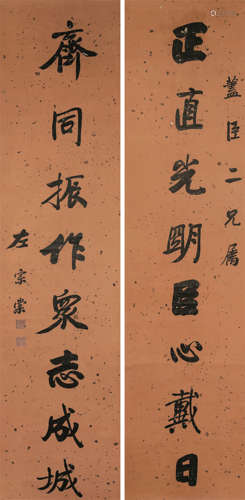 藎臣二兄屬
正直光明臣心戴日
齊同振作眾志成城
左宗棠